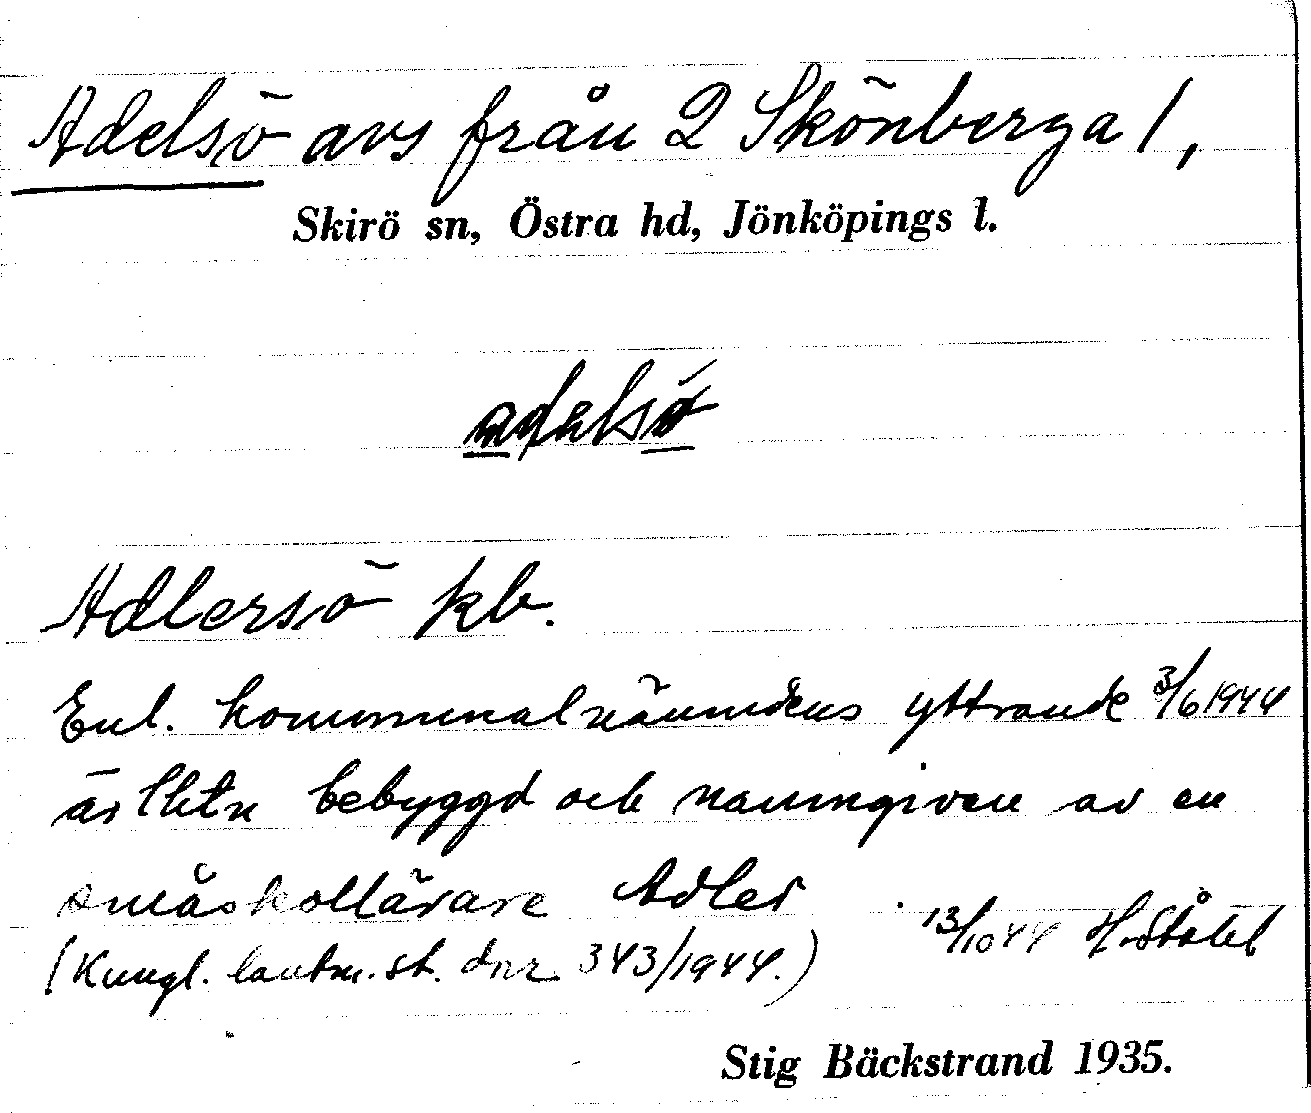 Adelsö avs från 2 Skönberga 1,
Skirö sn, Östra hd, Jönköpings l.
adelsö
Adlersö kb.
Enl. kommunalnämndens yttrande 3/6 1944
är lhtn bebyggd och namngiven av en
småskollärare Adler
13/10 44 H. Ståhl
(Kungl. lantm. st. dnr 343/1944.)
Stig Bäckstrand 1935.